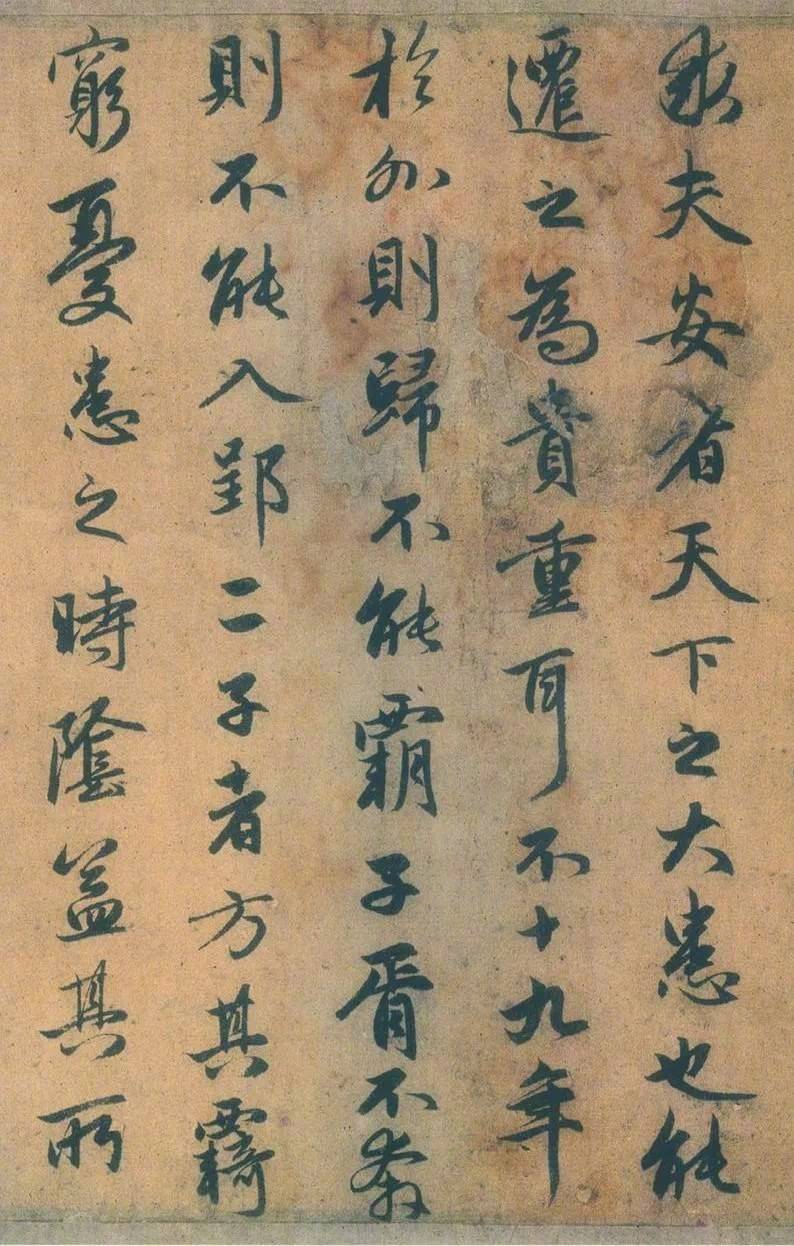 哉夫安者天下之大患也能
遷之為貴重耳不十九年
於外則歸不能霸子胥不奔
則不能入郢二子者方其覉
窮憂患之時陰益其所